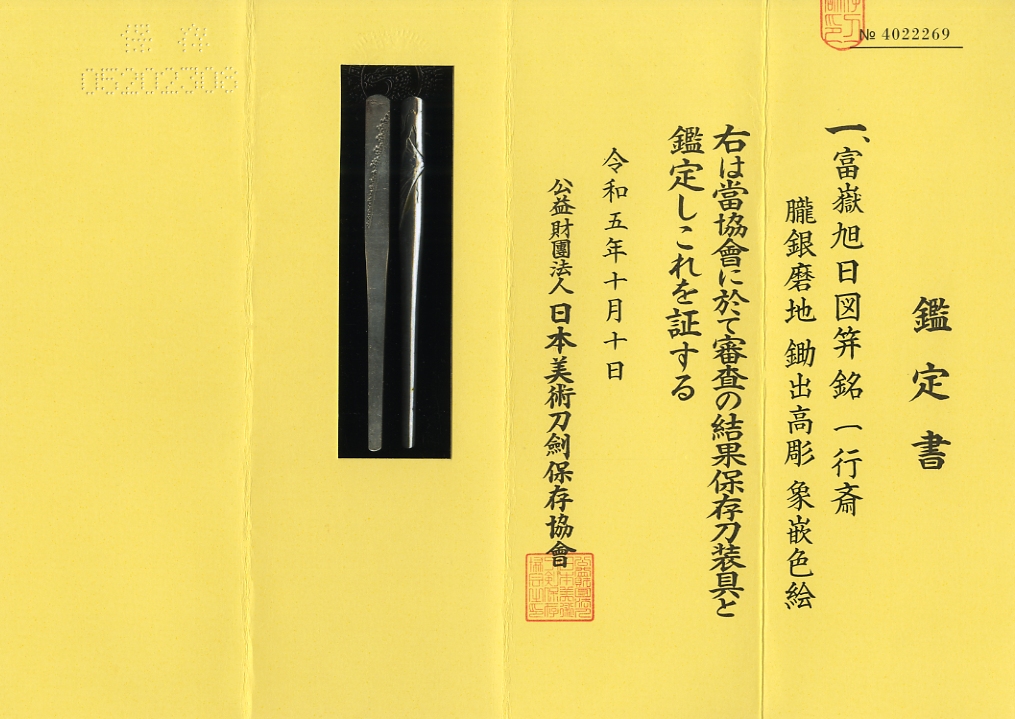 № 4022269
鑑定書
一、富嶽旭日図笄 銘 一行斎
朧銀磨地 鋤出高彫 象嵌色絵
右は當協會に於て審査の結果保存刀装具と
鑑定しこれを証する
令和五年十月十日
公益財團法人 日本美術刀劍保存協會
保存
05202306